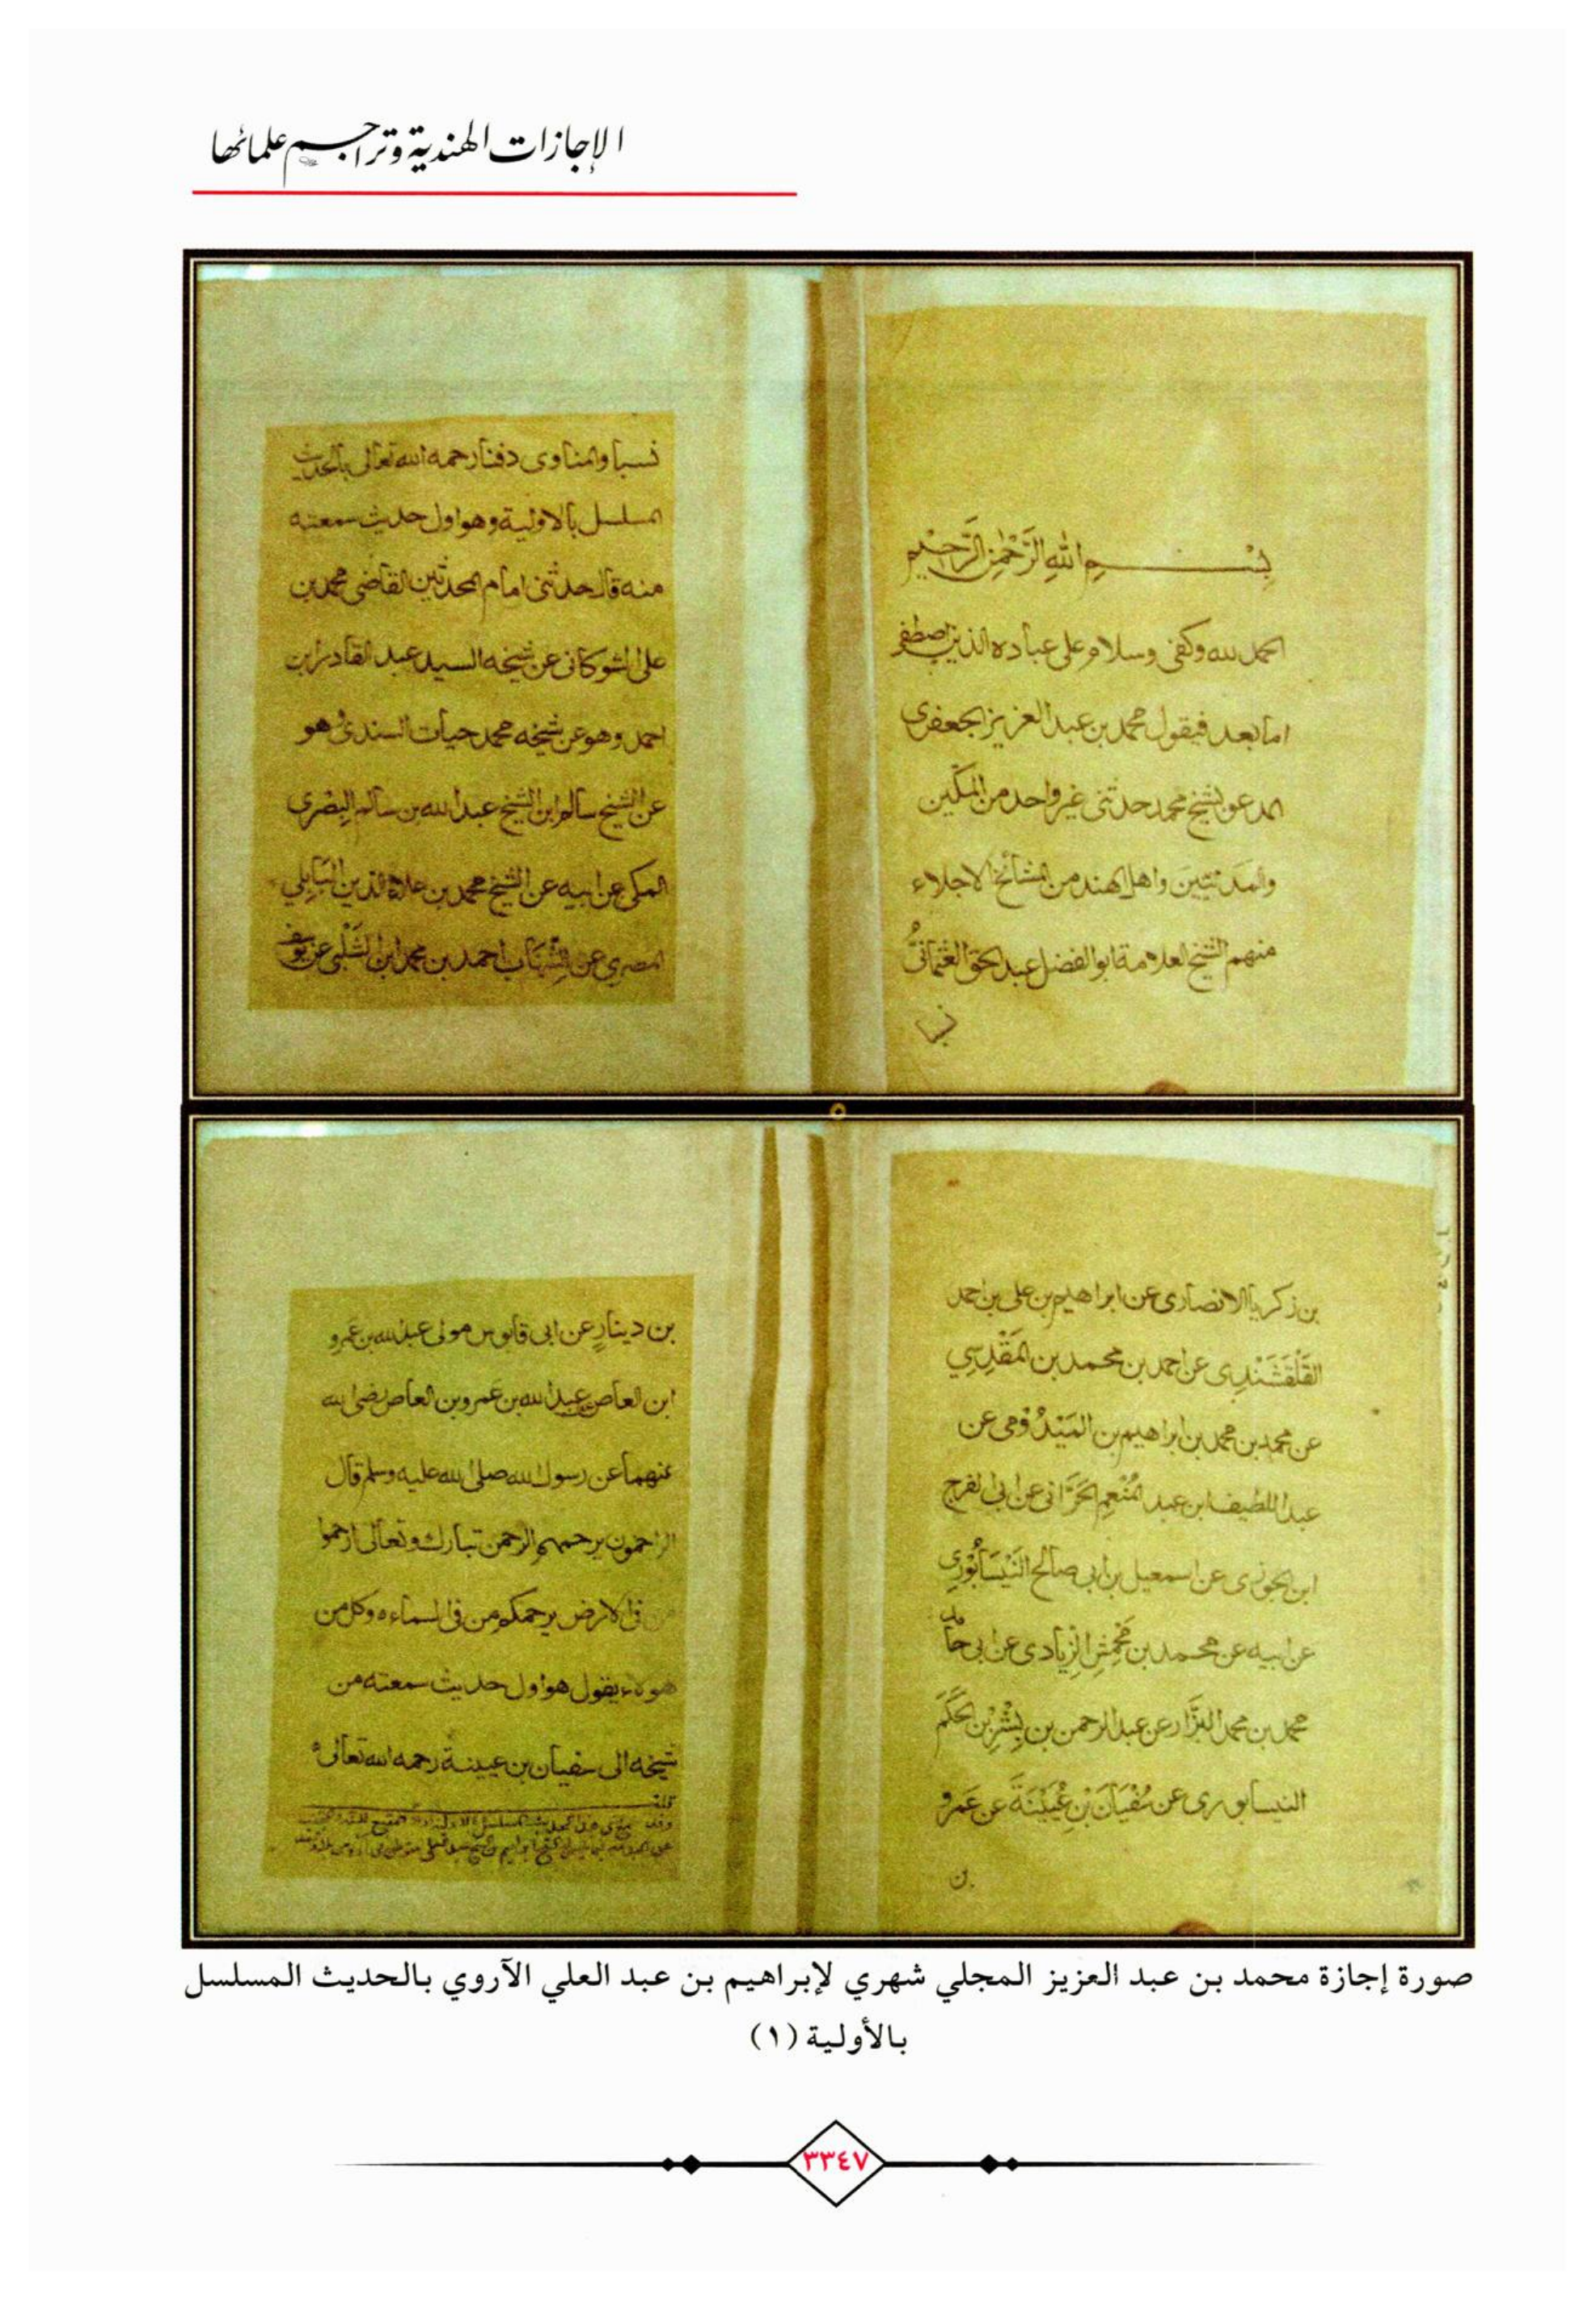 الإجازات الهندية وتراجم علمائها
بِسْمِ اللهِ الرَّحْمٰنِ الرَّحِيْمِ
الحمد لله وكفى وسلام على عباده الذين اصطفى
اما بعد فيقول محمد بن عبد العزيز الجعفرى
المدعو بشيخ محمد حدثنى غير واحد من المكّين
والمدنيّينَ واهل الهند من المشائخ الاجلاء
منهم الشيخ العلامة ابو الفضل عبد الحق العثمانىُّ
نسبا
نسبا والمناوى دفنا رحمه الله تعالى بالحديث
المسلسل بالاولية وهو اول حديث سمعته
منه قال حدثنى امام المحدثين القاضى محمد بن
على الشوكانى عن شيخه السيد عبد القادر ابن
احمد وهو عن شيخه محمد حيات السندى وهو
عن الشيخ سالم ابن الشيخ عبد الله بن سالم البصرى
المكى عن ابيه عن الشيخ محمد بن علاء الدين البَابِلي
المصرى عن الشِّهَاب احمد بن محمد ابن الشَّلْبى عن يوسف
بن زكريا الانصارى عن ابراهيم بن على بن احمد
القَلْقَشَنْدِى عن احمد بن محمد بن المَقْدِسِي
عن محمد بن محمد بن ابراهيم بن المَيْدُوْمى عن
عبد اللطيف ابن عبد المُنْعِم الحَرَّانى عن ابى الفرج
ابن الجوزى عن اسمعيل بن ابى صالح النَيْسَابُوْرِى
عن ابيه عن محمد بن مَحْمِش الزيادى عن ابى حامد
محمد بن محمد البَزَّار عن عبد الرحمن بن بِشْرِ بْنِ الحَكَم
النيسابورى عن سُفْيَانَ بْنِ عُيَيْنَةَ عن عَمرو
بن
بن دينارٍ عن ابى قابوس مولى عبد الله بن عَمرو
ابن العاص عن عبد الله بن عَمرو بن العاص رضى الله
عنهما عن رسول الله صلى الله عليه وسلم قال
الراحمون يرحمهم الرحمن تبارك وتعالى ارحموا
من فى الارض يرحمكم من فى السماء ه وكل من
هولاء يقول هو اول حديث سمعته من
شيخه الى سفيان بن عيينة رحمه الله تعالى
صورة إجازة محمد بن عبد العزيز المجلي شهري لإبراهيم بن عبد العلي الآروي بالحديث المسلسل
بالأولية (١)
٣٣٤٧